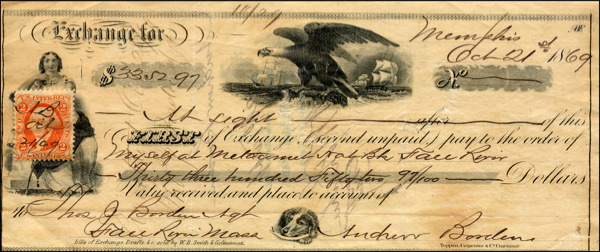 Memphis
Exchange for
Oct 21st 1869
$3352.97
No
At sight after of this
FIRST of Exchange, (second unpaid) pay to the order
of Myself at Metacomet Nat Bk Fall River
Thirty three hundred Fifty two 97/100 Dollars
Value received and place to account of
To Thos J Borden Agt
Fall River Mass Andrew Borden
Bills of Exchange Drafts &c. sold by W.B. Smith & Co. Cincinnati.
Toppan, Carpenter & Co. Cincinnati